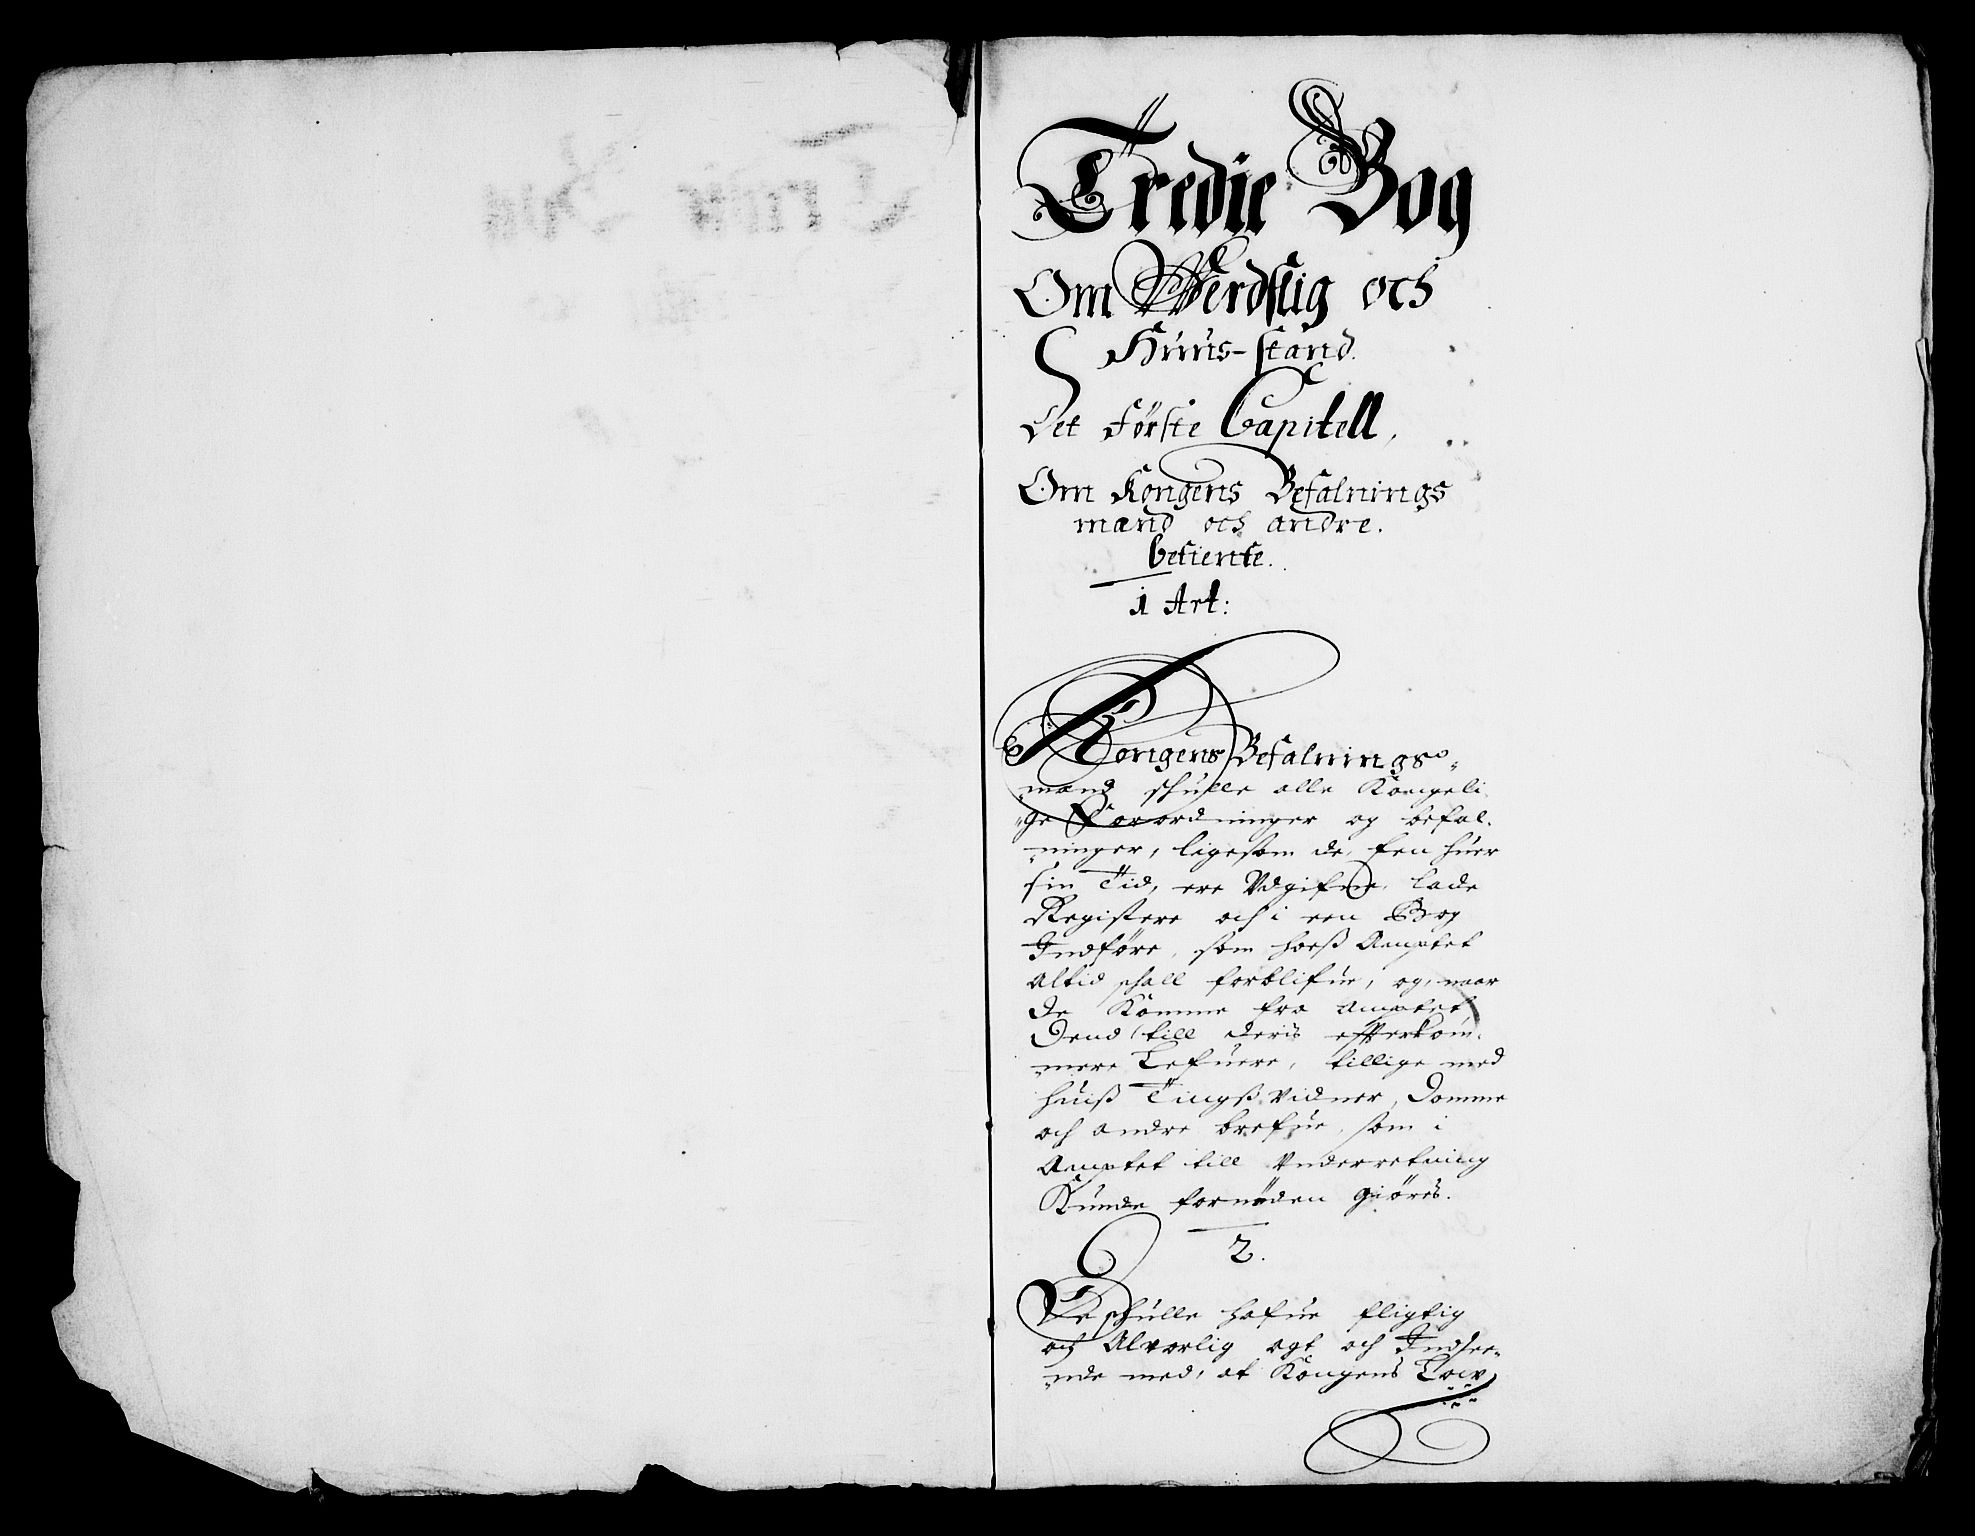 Tredie Bog
Om Werdslig och
Huus-stand.
Det Første Capitell,
Om Kongens Befalnings
mænd och andre.
betiente.
1 Art:
Kongens Befalnings-
-mænd schulle alle Kongeli
-ge Forordninger og befal-
-ninger, ligesom de, hen huer
sin Tid, ere Vdgifne, lade
Registere och i een Bog
Indføre, som hoeß Amptet
Altid schall forblifue, og, naar
de Komme fra Amptet
Dend till deris efterkom-
-mere Lefuere, tillige med
huiß Tingß Vidner, Domme
och andre brefue, som i
Amptet till Vnderretning
Kunde fornøden giøris.
2.
De schulle hafue fligtig
och Alvorlig agt och Indsee-
-nde med, at Kongens Low